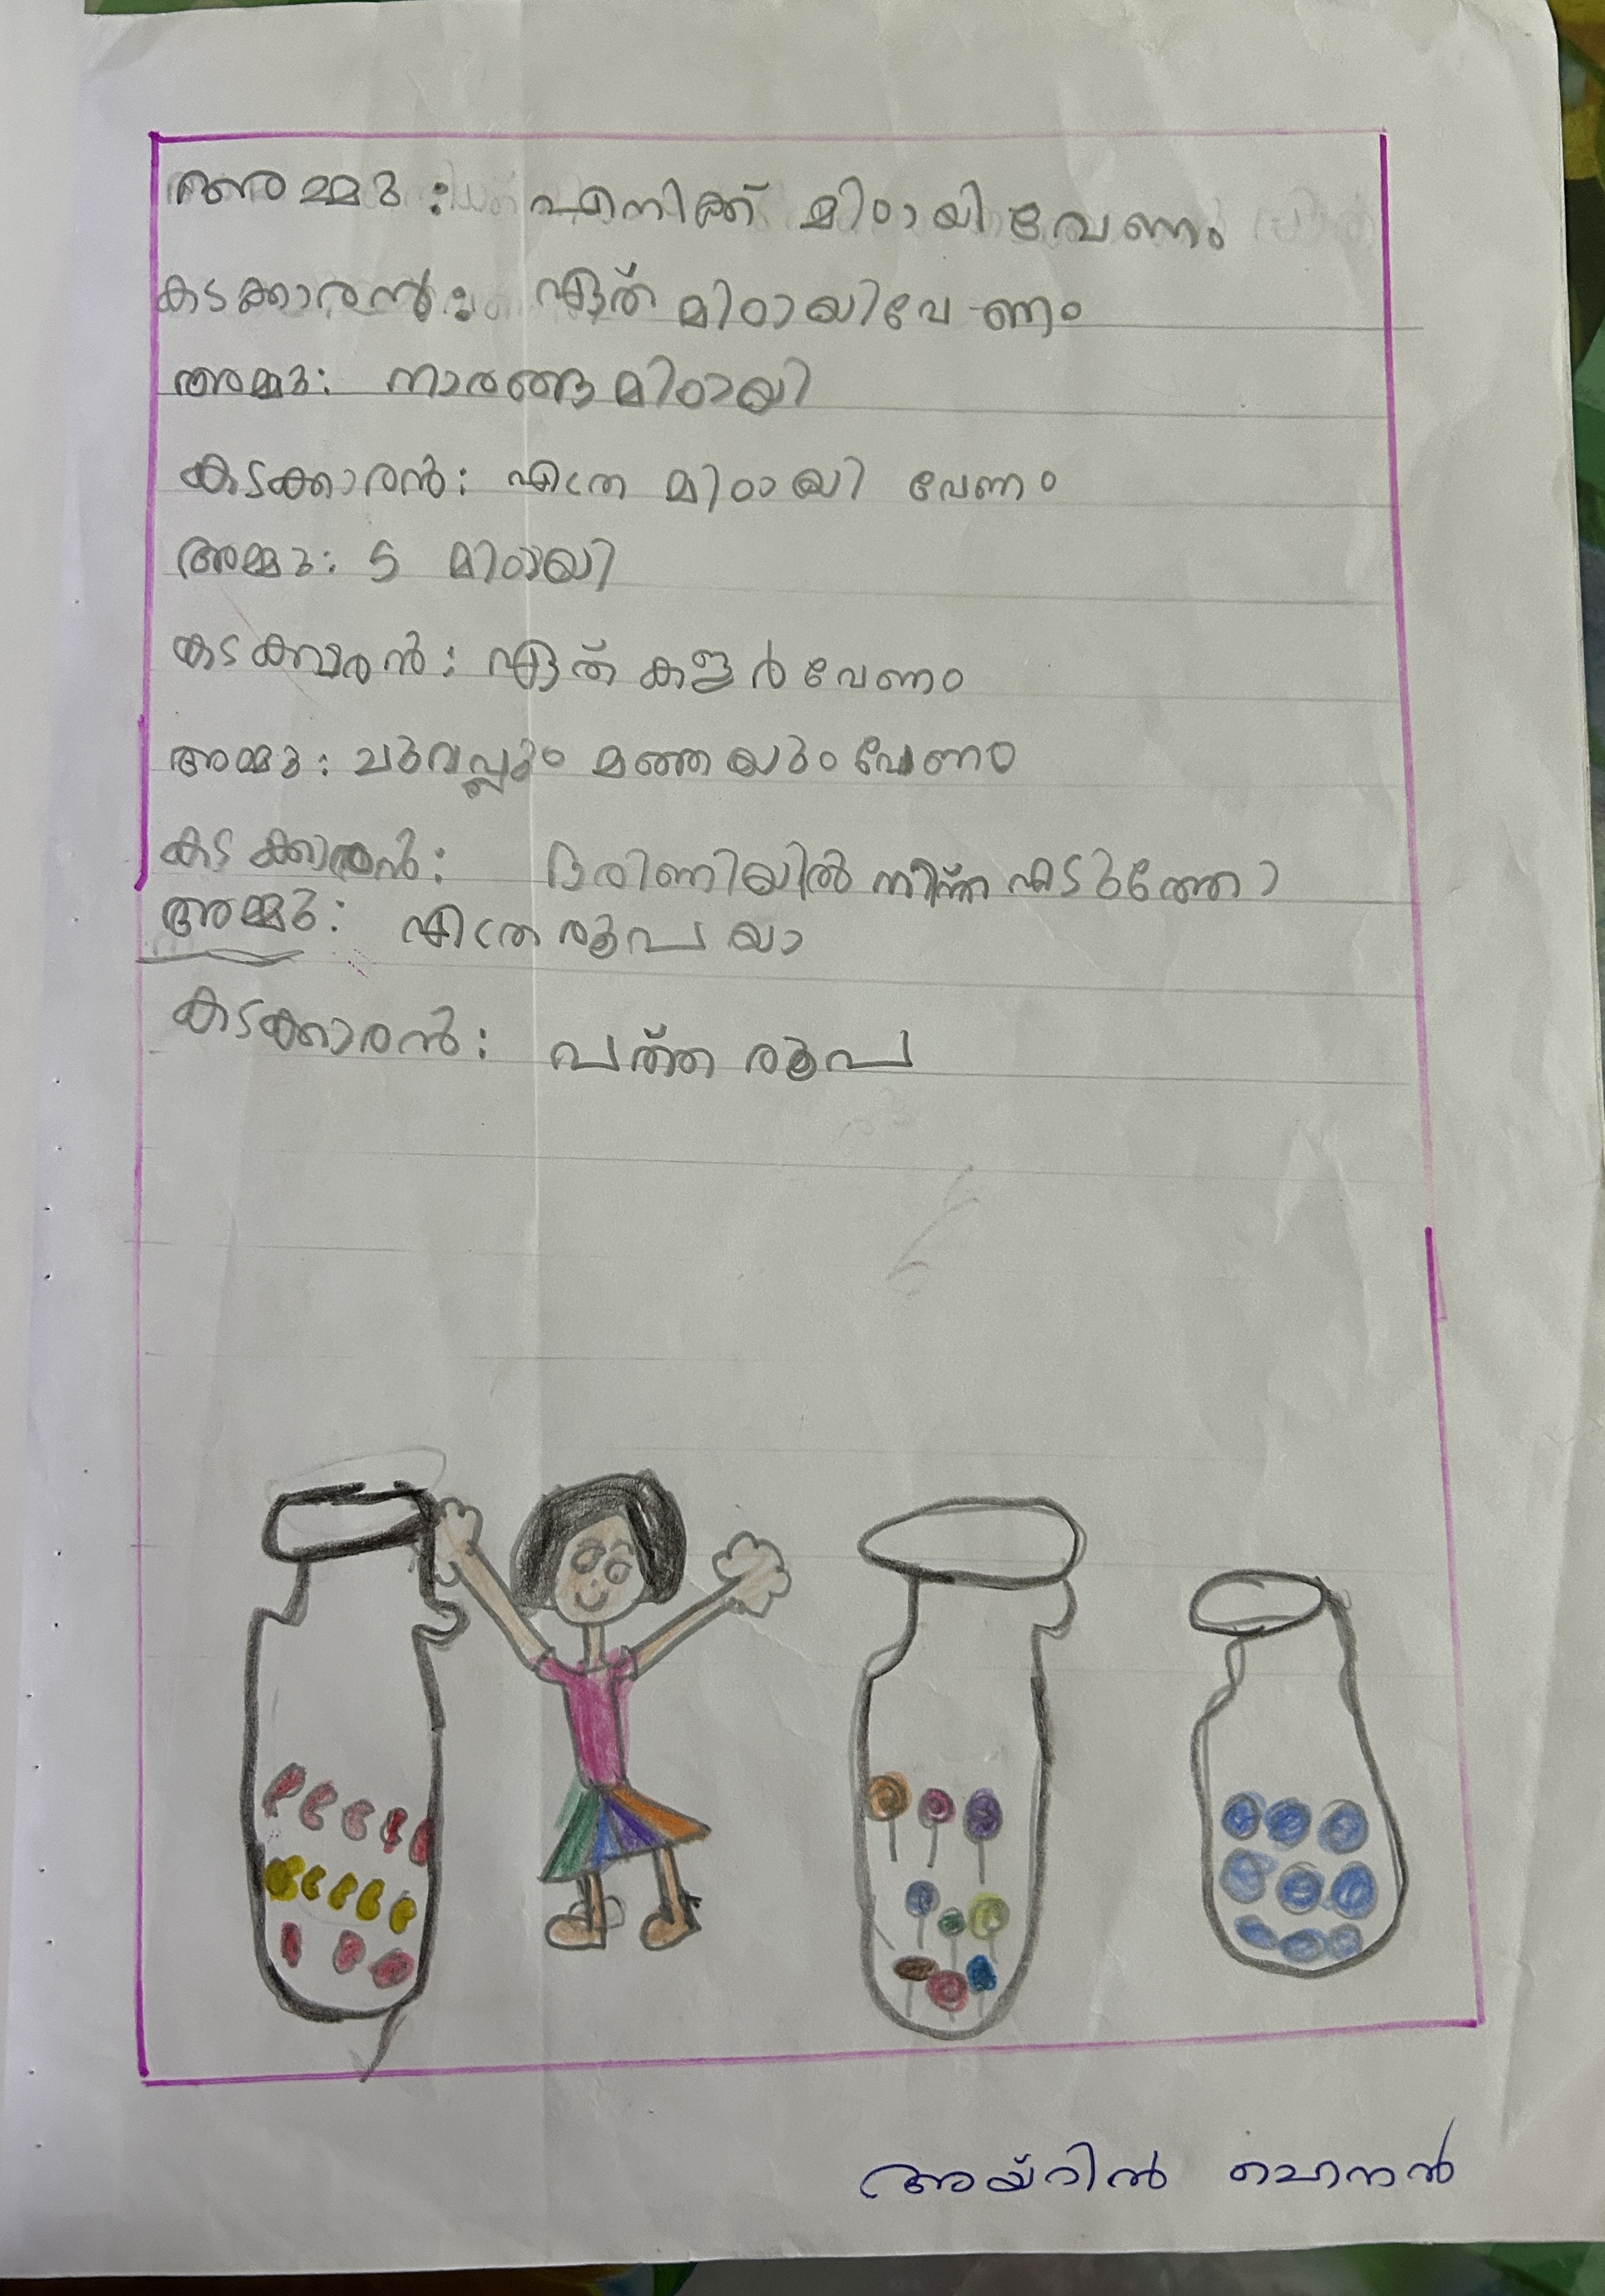 അമ്മു: എനിക്ക് മിഠായി വേണം
കടക്കാരൻ: ഏത് മിഠായി വേണം
അമ്മു: നാരങ്ങ മിഠായി
കടക്കാരൻ: എത്ര മിഠായി വേണം
അമ്മു: 5 മിഠായി
കടക്കാരൻ: ഏത് കളർ വേണം
അമ്മു: ചുവപ്പും മഞ്ഞയും വേണം
കടക്കാരൻ: ഭരിണിയിൽ നിന്ന് എടുത്തോ
അമ്മു: എത്ര രൂപ യാ
കടക്കാരൻ: പത്ത് രൂപ
അയ്റിൻ